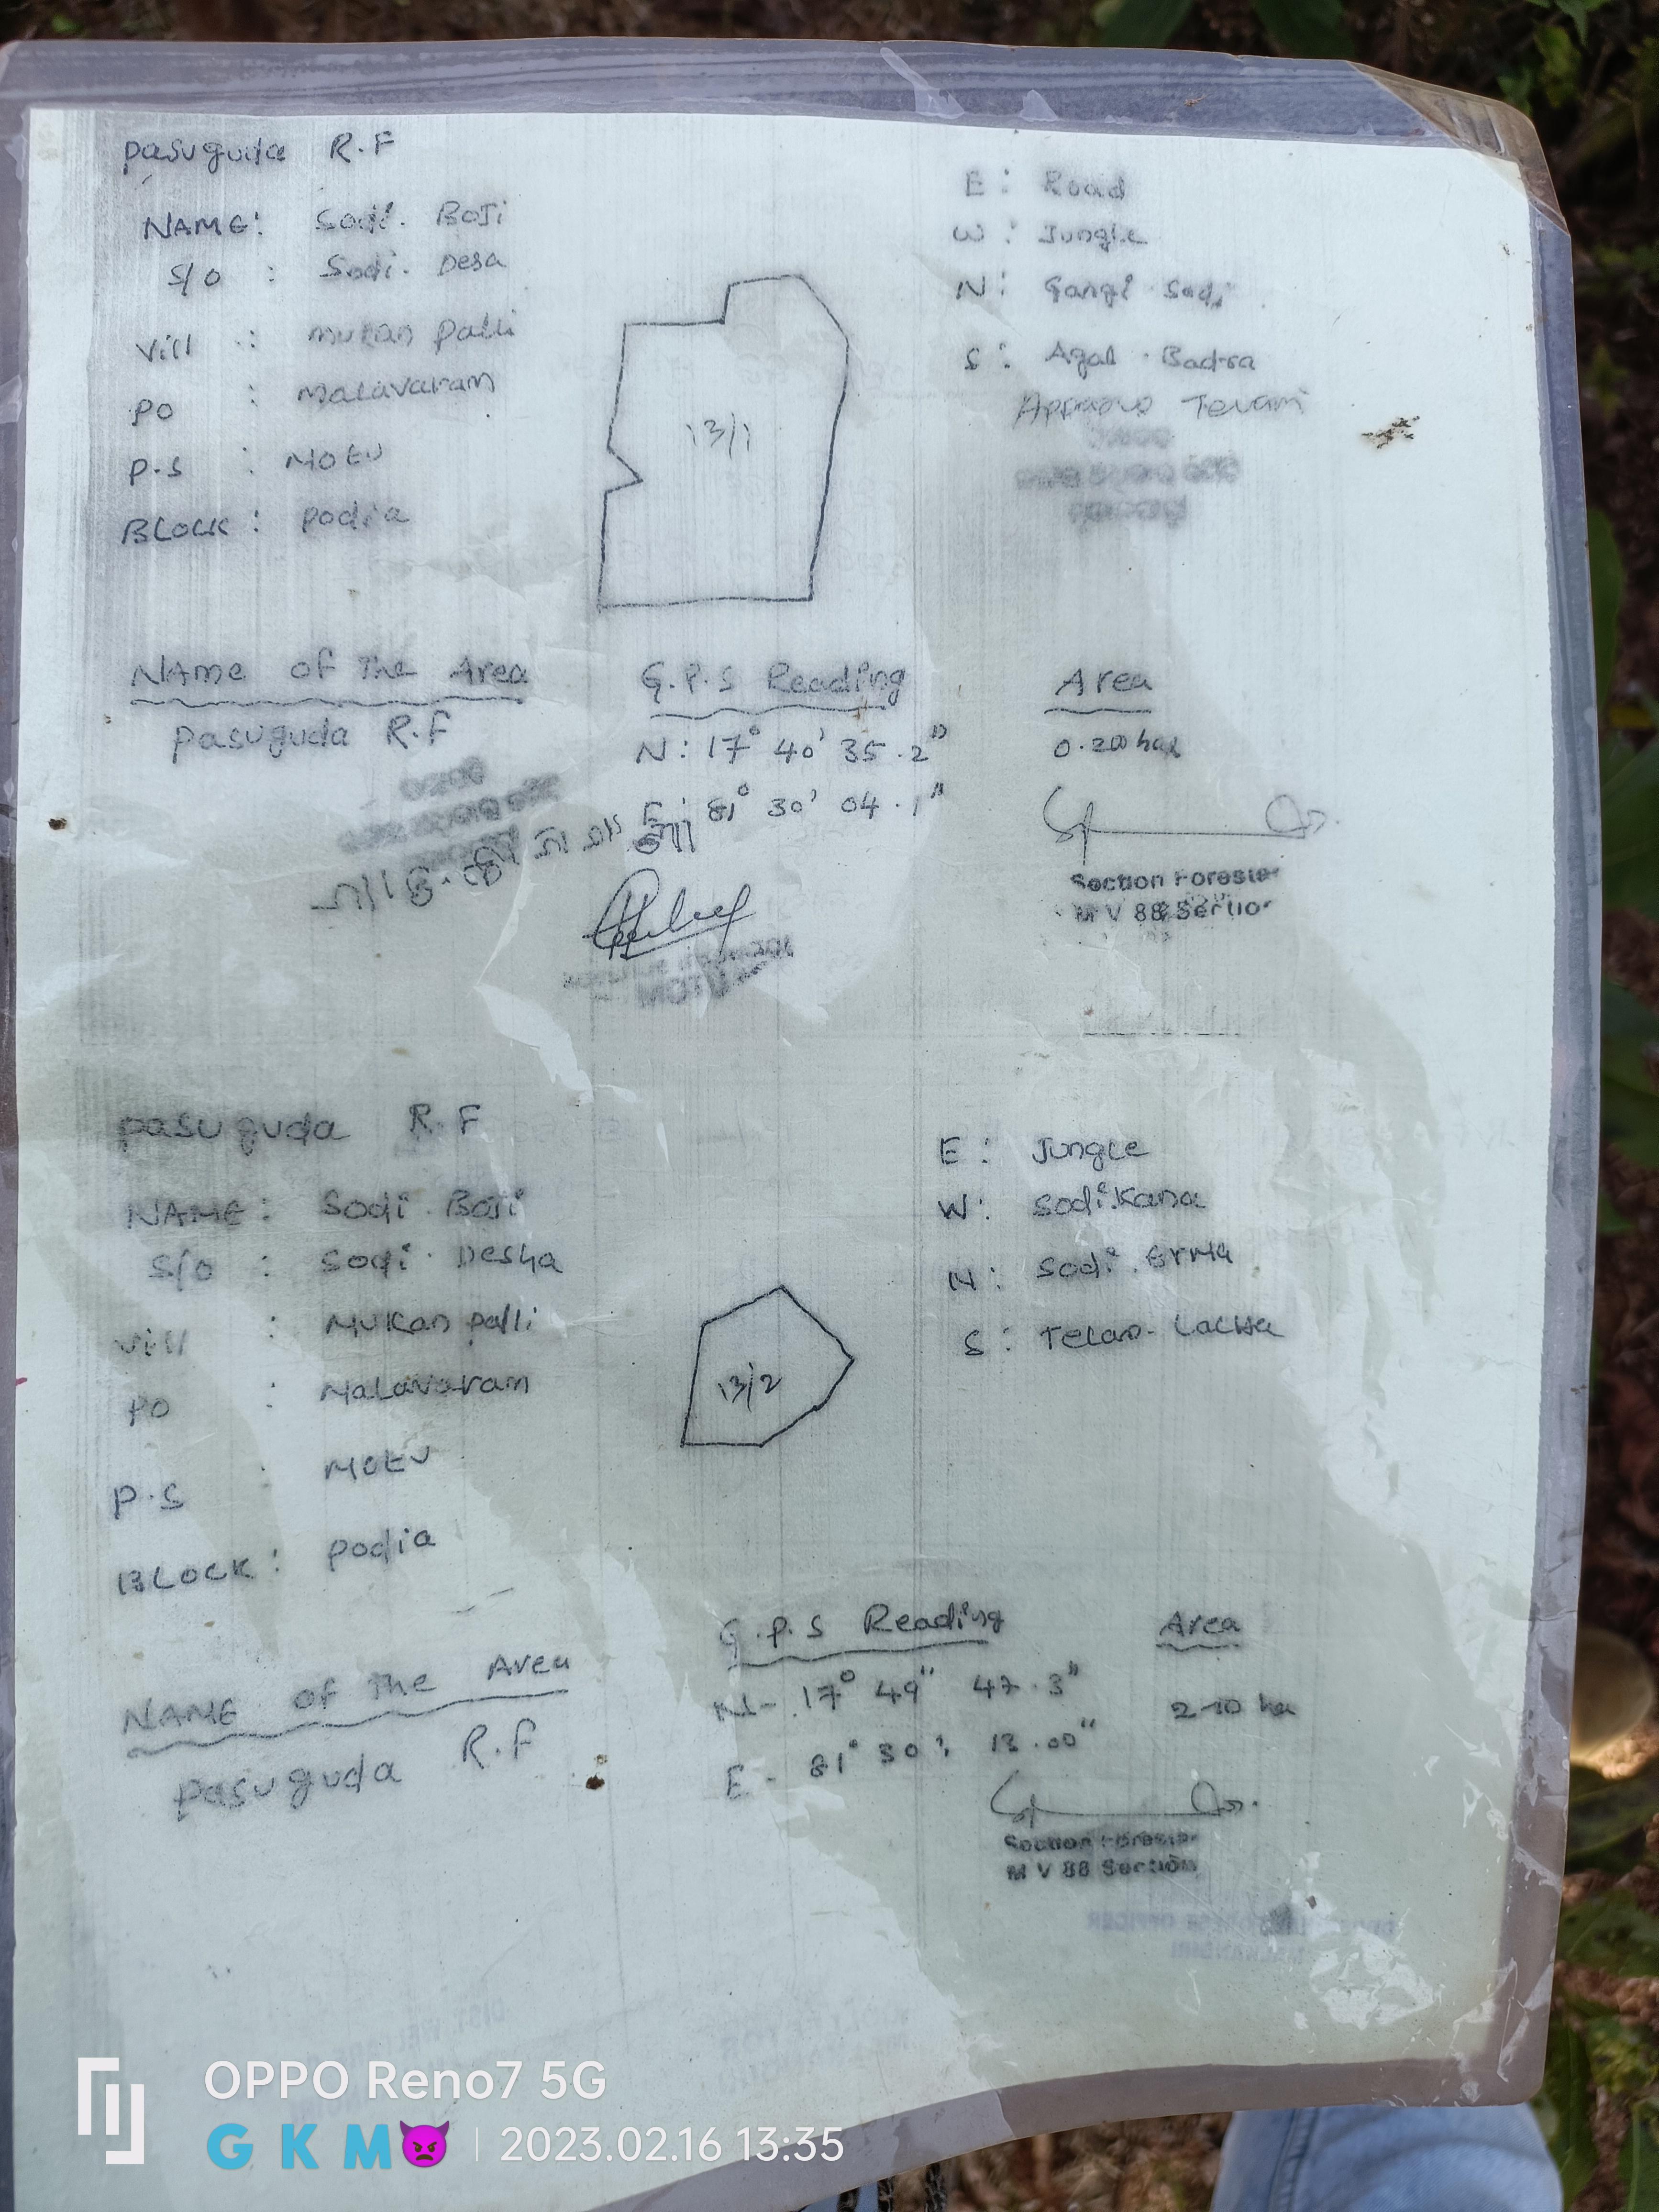 pasuguda R.F
NAME: Sodi. BOJi
S/O : Sodi. Desa
Vill : mukan palli
PO : Malavaram
P.S : MOTU
BLOCK: podia
E: Road
W: Jungle
N: Gangi Sodi
S: Badra
13/1
Name of The Area
pasuguda R.F
G.P.S Reading
N: 17° 40' 35.2"
E: 81° 30' 04.1"
Area
Section Forester
M V 88 Section
pasuguda R.F
NAME: Sodi. Boji
S/O : Sodi. Desha
Vill : Mukan palli
PO : Malavaram
P.S : MOTU
BLOCK: podia
E: Jungle
W: Sodi.Kana
N: Sodi.
S: Lacha
13/2
NAME of The Area
pasuguda R.F
G.P.S Reading
N- 17° 49" 47.3"
E- 81° 30' 13.00"
Area
Section Forester
M V 88 Section
OPPO Reno7 5G
G K M😈 | 2023.02.16 13:35